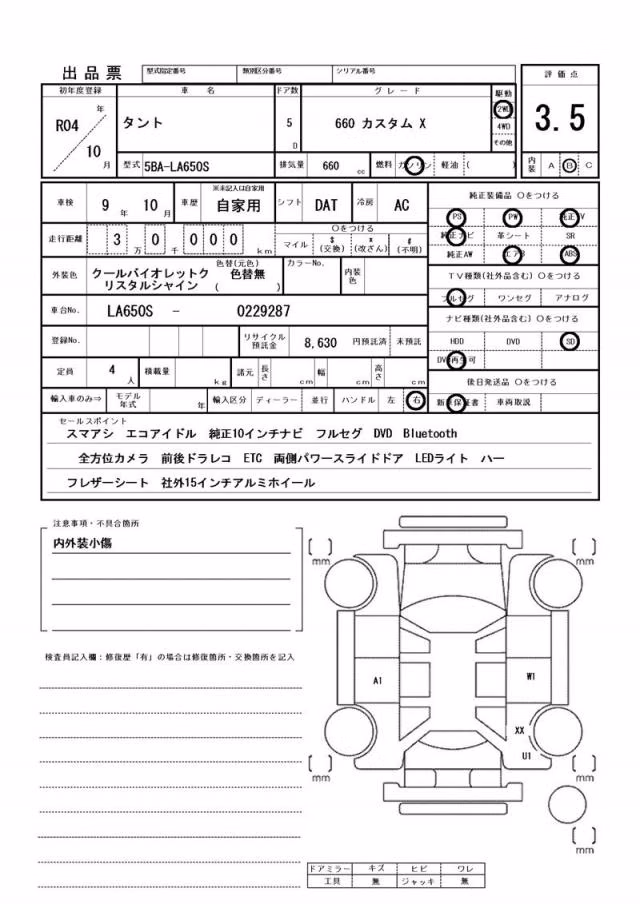 出品票 型式指定番号 類別区分番号 シリアル番号
初年度登録 車名 ドア数 グレード 駆動 評価点
R04 年 10 月 タント 5 D 660 カスタム X 2WD 4WD その他 3.5
型式 5BA-LA650S 排気量 660 cc 燃料 ガソリン 軽油 ( ) 内装 A B C
車検 9 年 10 月 車歴 ※未記入は自家用 自家用 シフト DAT 冷房 AC
走行距離 3 万 0 千 0 0 0 km ○をつける マイル $ (交換) x (改ざん) # (不明)
外装色 クールバイオレットク 色替(元色) 色替無 カラーNo. 内装色
リスタルシャイン ( )
車台No. LA650S - 0229287
登録No. リサイクル預託金 8,630 円預託済 未預託
定員 4 人 積載量 kg 諸元 長さ cm 幅 cm 高さ cm
輸入車のみ⇒ モデル年式 年 輸入区分 ディーラー 並行 ハンドル 左 右
純正装備品 ○をつける
PS PW 純正TV
純正ナビ 革シート SR
純正AW エアB ABS
TV種類(社外品含む) ○をつける
フルセグ ワンセグ アナログ
ナビ種類(社外品含む) ○をつける
HDD DVD SD
DVD再生可
後日発送品 ○をつける
新車保証書 車両取説
セールスポイント
スマアシ エコアイドル 純正10インチナビ フルセグ DVD Bluetooth
全方位カメラ 前後ドラレコ ETC 両側パワースライドドア LEDライト ハー
フレザーシート 社外15インチアルミホイール
注意事項・不具合箇所
内外装小傷
検査員記入欄：修復歴「有」の場合は修復箇所・交換箇所を記入
[ ] mm [ ] mm
A1 W1
XX
U1
[ ] mm [ ] mm
[ ] mm
ドアミラー キズ ヒビ ワレ
工具 無 ジャッキ 無